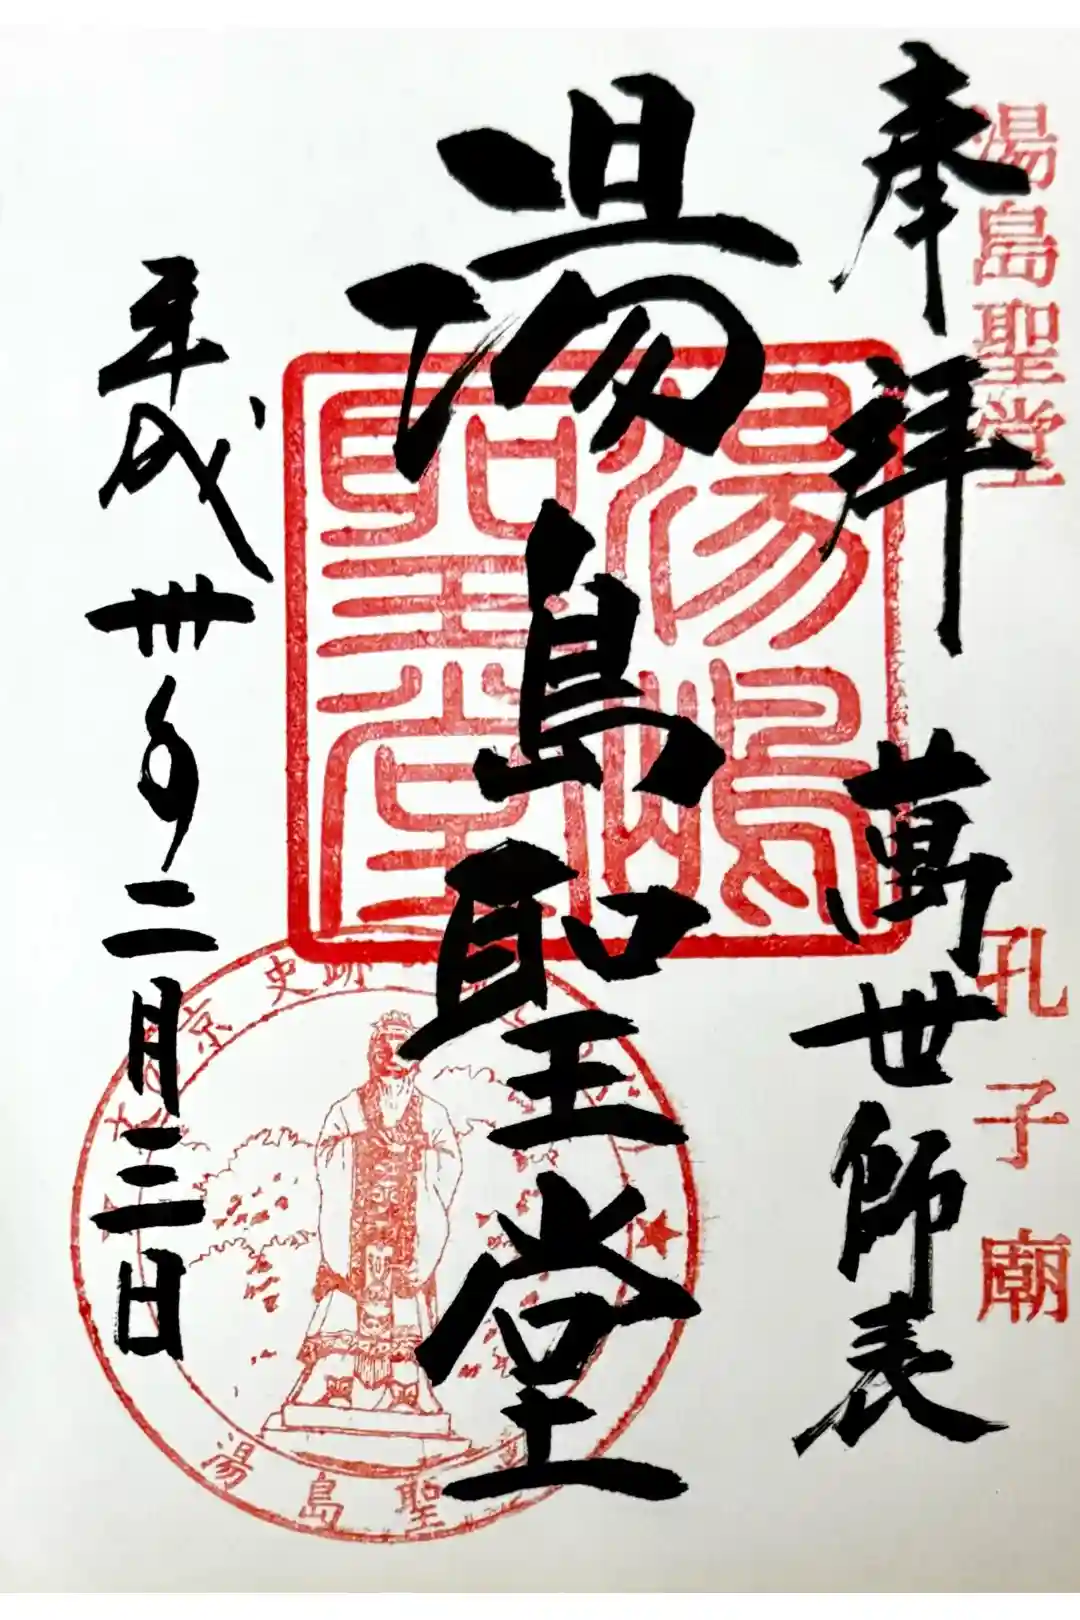 湯島聖堂
孔子廟
奉拜
萬世師表
湯島聖堂
湯島聖堂
平成卅年二月三日
京 史跡
湯島聖